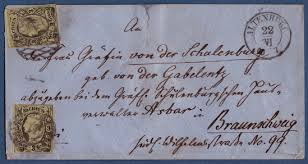 ALTENBURG
22
VI
An
Frau Gräfin von der Schulenburg
geb. von der Gabelentz
abzugeben bei dem Gräfl. Schulenburgschen Haus-
verwalter Asbar
Braunschweig
Wilhelms Straße No 99.